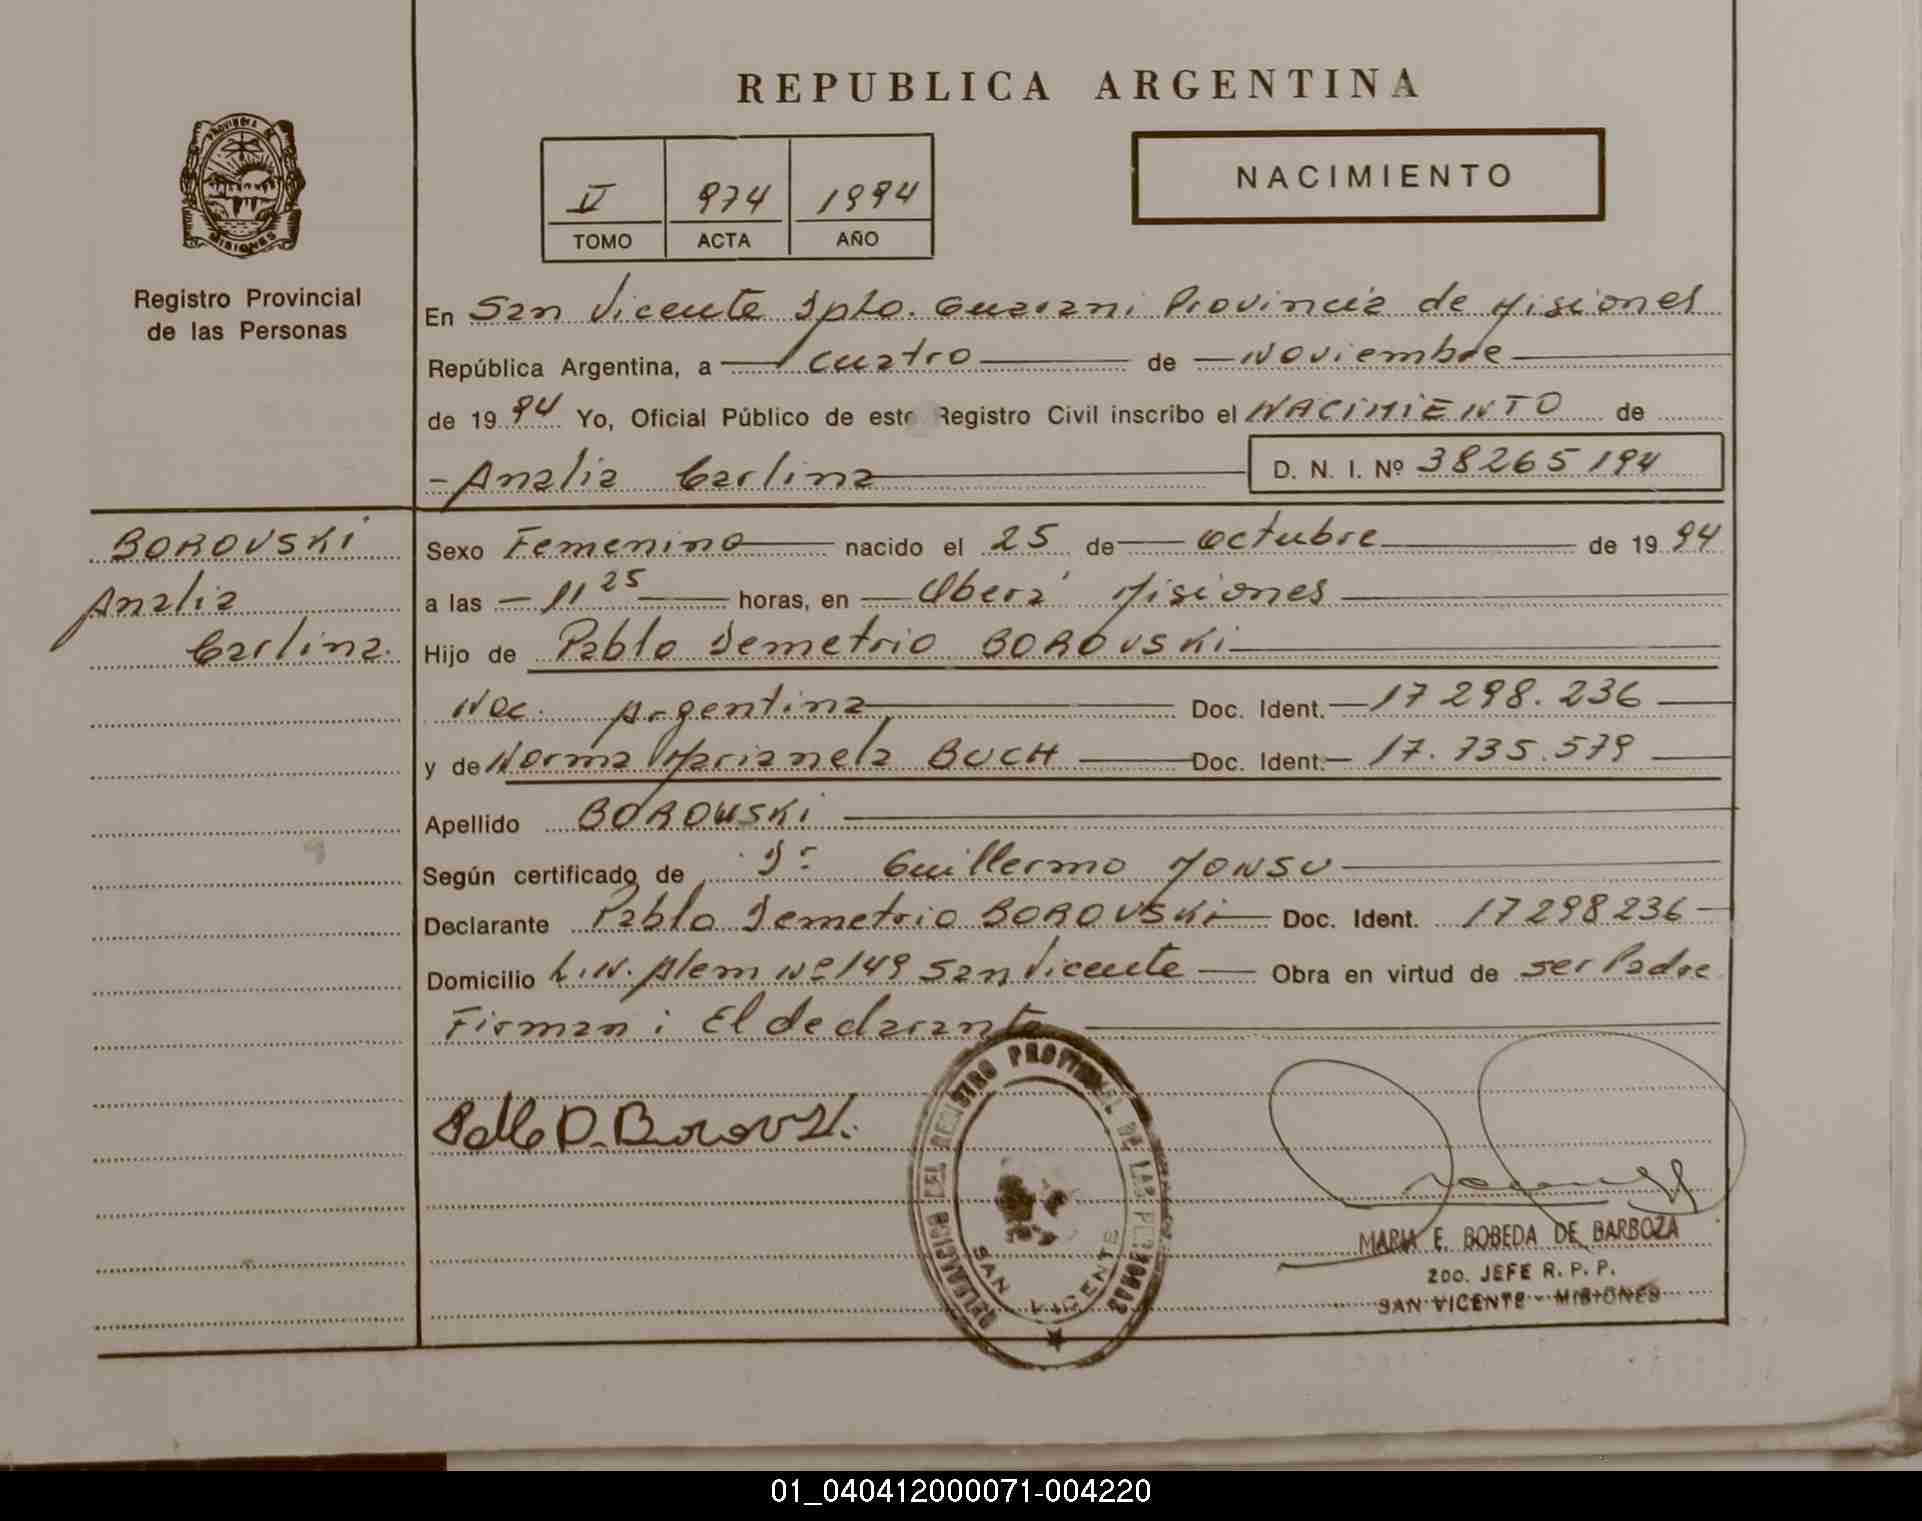 REPUBLICA ARGENTINA
PROVINCIA DE
MISIONES
Registro Provincial
de las Personas
V 974 1994
TOMO ACTA AÑO
NACIMIENTO
En San Vicente Dpto. Guarani Provincia de Misiones
República Argentina, a cuatro de Noviembre
de 1994 Yo, Oficial Público de este Registro Civil inscribo el NACIMIENTO de
Analia Carlina D. N. I. Nº 38265194
BOROVSKI
Analia
Carlina.
Sexo Femenino nacido el 25 de octubre de 1994
a las 11 25 horas, en Oberá Misiones
Hijo de Pablo Demetrio BOROVSKI
Nac. Argentina Doc. Ident. 17298.236
y de Norma Marianela BUCH Doc. Ident. 17.735.579
Apellido BOROVSKI
Según certificado de Dr Guillermo
Declarante Pablo Demetrio BOROVSKI Doc. Ident. 17298236
Domicilio L.N. Alem Nº 149 San Vicente Obra en virtud de ser Padre
Firman: El declarante
Pablo D. Borovski
DELEGACION DEL REGISTRO PROVINCIAL DE LAS PERSONAS
SAN VICENTE
MARIA E. BOBEDA DE BARBOZA
2DO. JEFE R. P. P.
SAN VICENTE - MISIONES
01_040412000071-004220